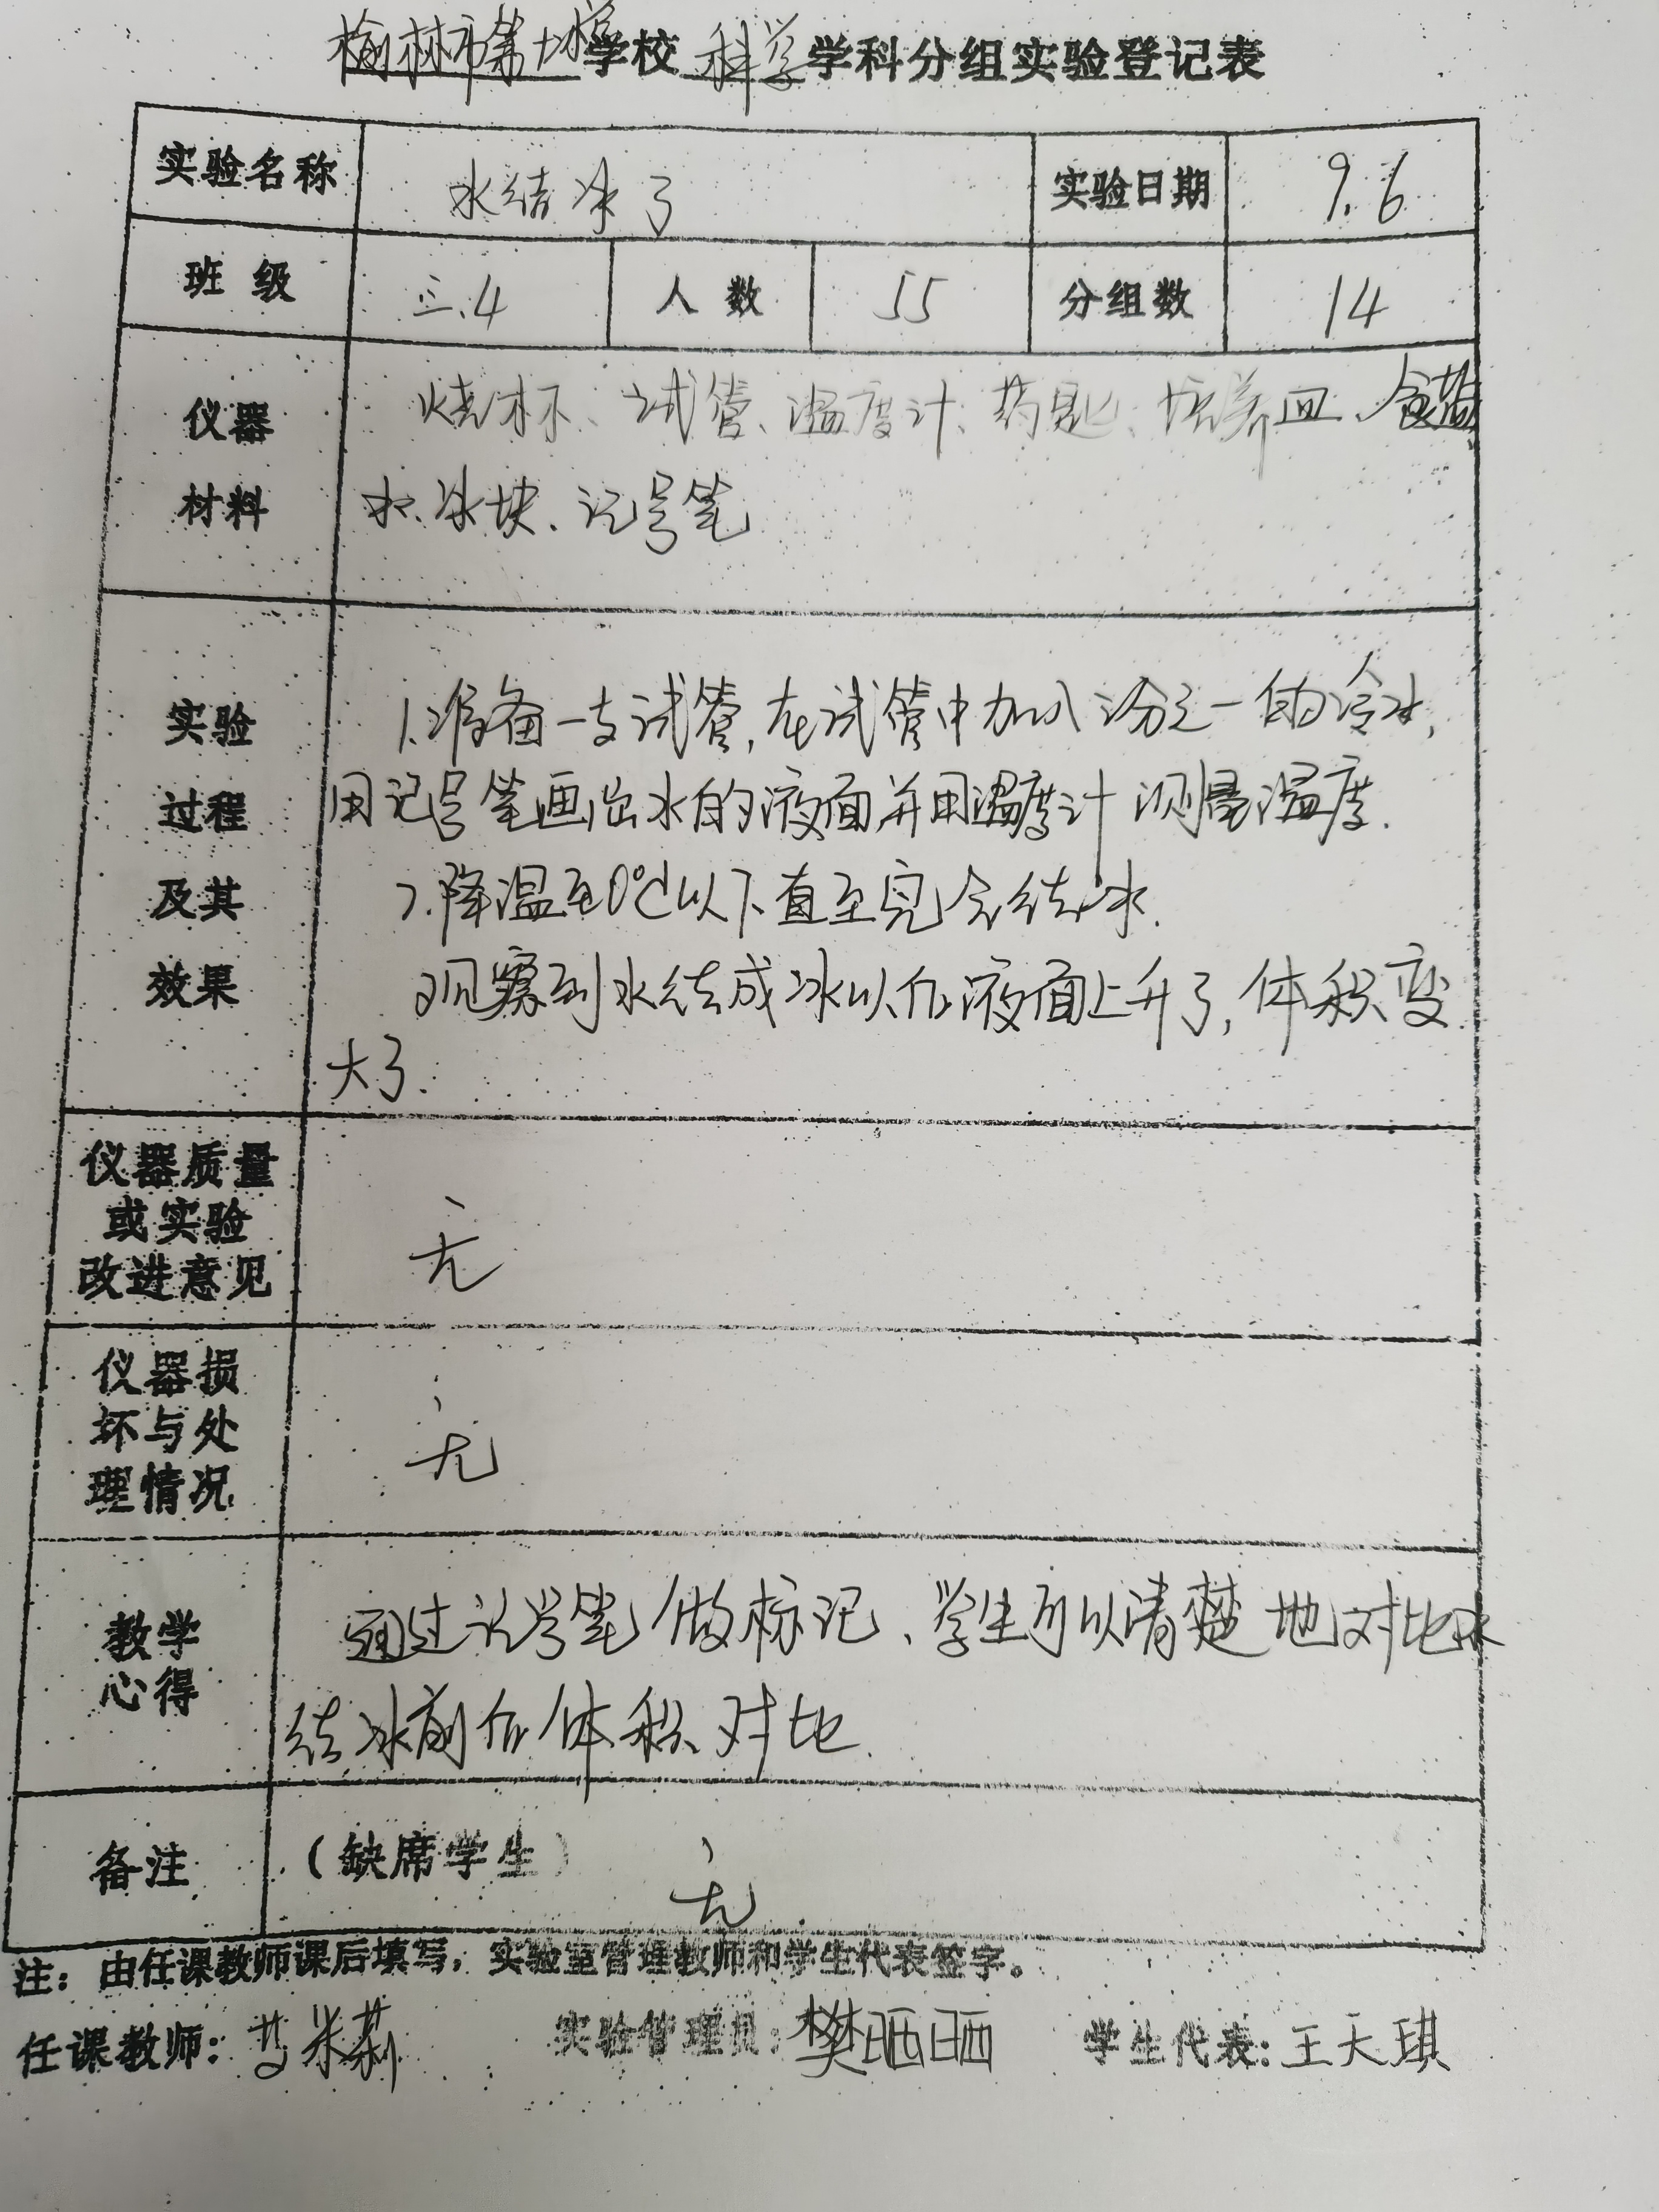 榆林市第十小学学校 科学 学科分组实验登记表
实验名称 水结冰了 实验日期 9.6
班 级 三.4 人 数 55 分组数 14
仪器 材料
烧杯、试管、温度计、药匙、培养皿、食盐
水、冰块、记号笔
实验 过程 及其 效果
1.准备一支试管,在试管中加入 分之一的冷水,
用记号笔画出水的液面,并用温度计测量温度.
2.降温至0℃以下直至完全结冰.
观察到水结成冰以后液面上升了,体积变
大了.
仪器质量
或实验
改进意见
无
仪器损
坏与处
理情况
无
教学
心得
通过记号笔做标记、学生可以清楚地对比水
结冰前后体积对比.
备注 (缺席学生) 无
注:由任课教师课后填写,实验室管理教师和学生代表签字。
任课教师: 实验管理员:樊晒晒 学生代表:王天琪